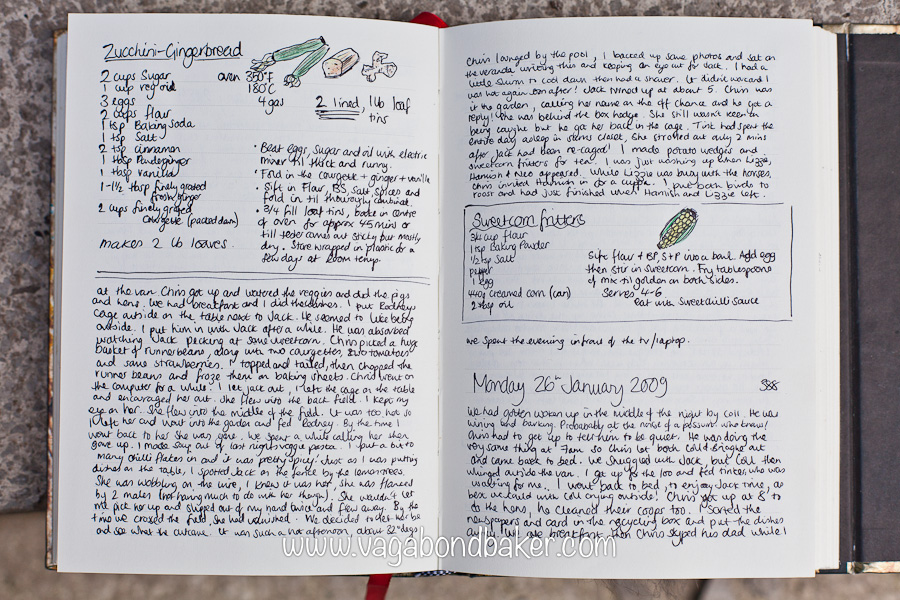 Zucchini-Gingerbread
2 cups Sugar
1 cup veg oil
3 eggs
2 cups flour
1 tsp Baking Soda
1 tsp Salt
2 tsp cinnamon
1 tbsp
1 tbsp vanilla
1-1½ tbsp finely grated
fresh ginger
2 cups finely grated
Courgette (packed down)
makes 2 lb loaves.
oven 350°F
180°C
4 gas
2 lined, 1lb loaf
tins
• Beat eggs, sugar and oil with electric
mixer til thick and runny.
• Fold in the courgette + ginger + vanilla
• Sift in Flour, BS, Salt, spices and
fold in til thouroughly combined.
• 3/4 fill loaf tins, bake in centre
of oven for approx 45 mins or
till tester comes out sticky but mostly
dry. Store wrapped in plastic for a
few days at room temp.
at the van. Chris got up and watered the veggies and did the pigs
and hens. We had breakfast and I did the dishes. I put Rodneys
cage outside on the table next to Jack. He seemed to like being
outside. I put him in with Jack after a while. He was absorbed
watching Jack pecking at some sweetcorn. Chris picked a huge
basket of runnerbeans, along with two courgettes, two tomatoes
and some strawberries. I topped and tailed, then chopped the
runner beans and froze them on baking sheets. Chris went on
the computer for a while. I let Jack out, I left the cage on the table
and encouraged her out. She flew into the back field. I kept my
eye on her. She flew into the middle of the field. It was too hot so
I left her and went into the garden and fed Rodney. By the time I
went back to her she was gone. We spent a while calling her then
gave up. I made soup out of last nights veggie pasta. I put a bit too
many chilli flakes in and it was pretty spicy. Just as I was putting
dishes on the table, I spotted Jack on the fence by the lemon trees.
She was wobbling on the wire, I knew it was her, she was flanked
by 2 males (not having much to do with her though). She wouldn't let
me pick her up and slipped out of my hand twice and flew away. By the
time we crossed the field, she had vanished. We decided to let her be
and see what the outcome. It was such a hot afternoon, about 32°degs
Chris lounged by the pool, I backed up some photos and sat on
the veranda writing this and keeping an eye out for Jack. I had a
little swim to cool down then had a shower. It didn't work and I
was hot again soon after! Jack turned up at about 5. Chris was
in the garden, calling her name on the off chance and he got a
reply! She was behind the box hedge. She still wasn't keen on
being caught but he got her back in the cage. Tink had spent the
entire day asleep in closet, she strolled out only 2 mins
after Jack had been re-caged! I made potato wedges and
sweetcorn fritters for tea. I was just washing up when Lizzie,
Hamish & Neo appeared. While Lizzie was busy with the horses,
Chris invited Hamish in for a cuppa. I put both birds to
roost and had just finished when Hamish and Lizzie left.
Sweetcorn fritters
3/4 cup flour
1 tsp Baking Powder
1/2 tsp Salt
pepper
1 egg
440g creamed corn (can)
2 tbsp oil
Sift flour + BP, S+P into a bowl. Add egg
then stir in sweetcorn. Fry tablespoons
of mix til golden on both sides.
Serves 4-6
Eat with Sweet chilli sauce
We spent the evening in front of the tv/laptop.
Monday 26th January 2009
We had gotten woken up in the middle of the night by Coll. He was
whining and barking. Probably at the noise of a possum who knows!
Chris had to get up to tell him to be quiet. He was doing the
very same thing at 7am so Chris let both coll & Bright out
and came back to bed. We snuggled with Jack but Coll then
whinged outside the van. I got up for the loo and fed Tinker who was
waiting for me. I went back to bed, to enjoy Jack time, as
best we could with Coll crying outside! Chris got up at 8 to
do the hens, he cleaned their coops too. I sorted the
newspapers and card in the recycling box and put the dishes
away. We ate breakfast then Chris skyped his dad while I
www.vagabondbaker.com